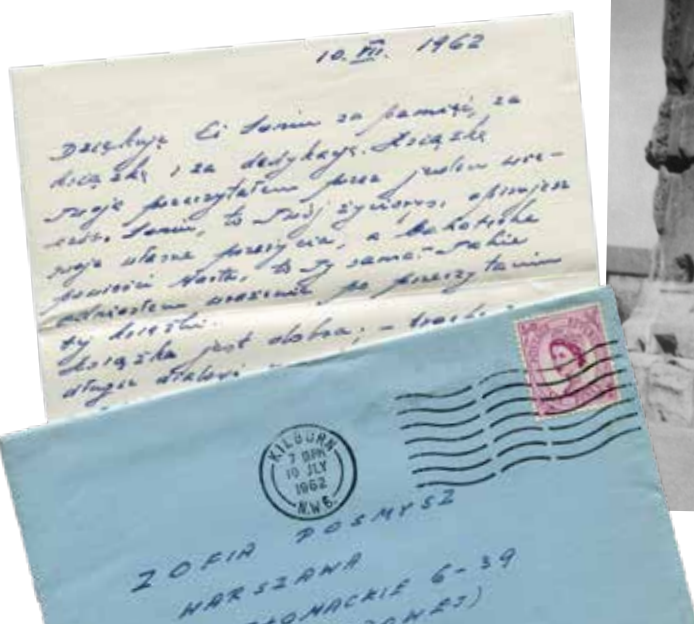 10. VII. 1962
Dziękuję Ci Zosiu za pamięć, za
książkę i za dedykację. Książkę
Twoją przeczytałem przez jeden wie-
czór. Zosiu, to Twój życiorys, opisujesz
swoje własne przeżycia, a bohaterka
powieści Marta, to Ty sama. – Takie
odniosłem wrażenie po przeczytaniu
tej książki.
Książka jest dobra; –
długie
KILBURN
7 30PM
10 JLY
1962
N.W.6.
ZOFIA POSMYSZ
WARSZAWA
6-39